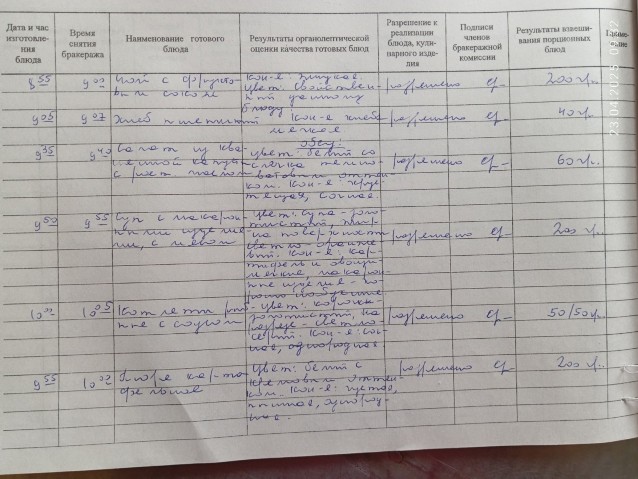 Дата и час изготовления блюда
Время снятия бракеража
Наименование готового блюда
Результаты органолептической оценки качества готовых блюд
Разрешение к реализации блюда, кулинарного изделия
Подписи членов бракеражной комиссии
Результаты взвешивания порционных блюд
8 55
9 00
Чай с фрукто-
вым соком
Кон-я: жидкая
цвет: свойствен-
ный данному
блюду
разрешено
200 гр.
9 05
9 07
Хлеб пшеничный
Кон-я хлеб
мягкая
разрешено
40 гр.
обед:
9 35
9 40
Салат из ква-
шеной капусты
с раст. маслом
цвет: белый со
слегка желто-
ватым оттен-
ком. Кон-я: хрус-
тящая, сочная.
разрешено
60 гр.
9 50
9 55
Суп с макарон-
ными изделия-
ми, с мясом
цвет: супа - золо-
тистый, жир-
на поверхности
светло-оранже-
вый. Кон-я: кар-
тофель и овощи
мягкие, макарон-
ные изделия -
разрешено
200 гр.
10 00
10 05
Котлеты
с соусом
цвет: корочка
золотистый, на
разрезе - светло-
серый. Кон-я: соч-
ная, однородная
разрешено
50/50гр.
9 55
10 00
Пюре карто-
фельное
цвет: белый с
кремовым оттен-
ком. Кон-я: густая,
пышная, однород-
ная.
разрешено
200 гр.